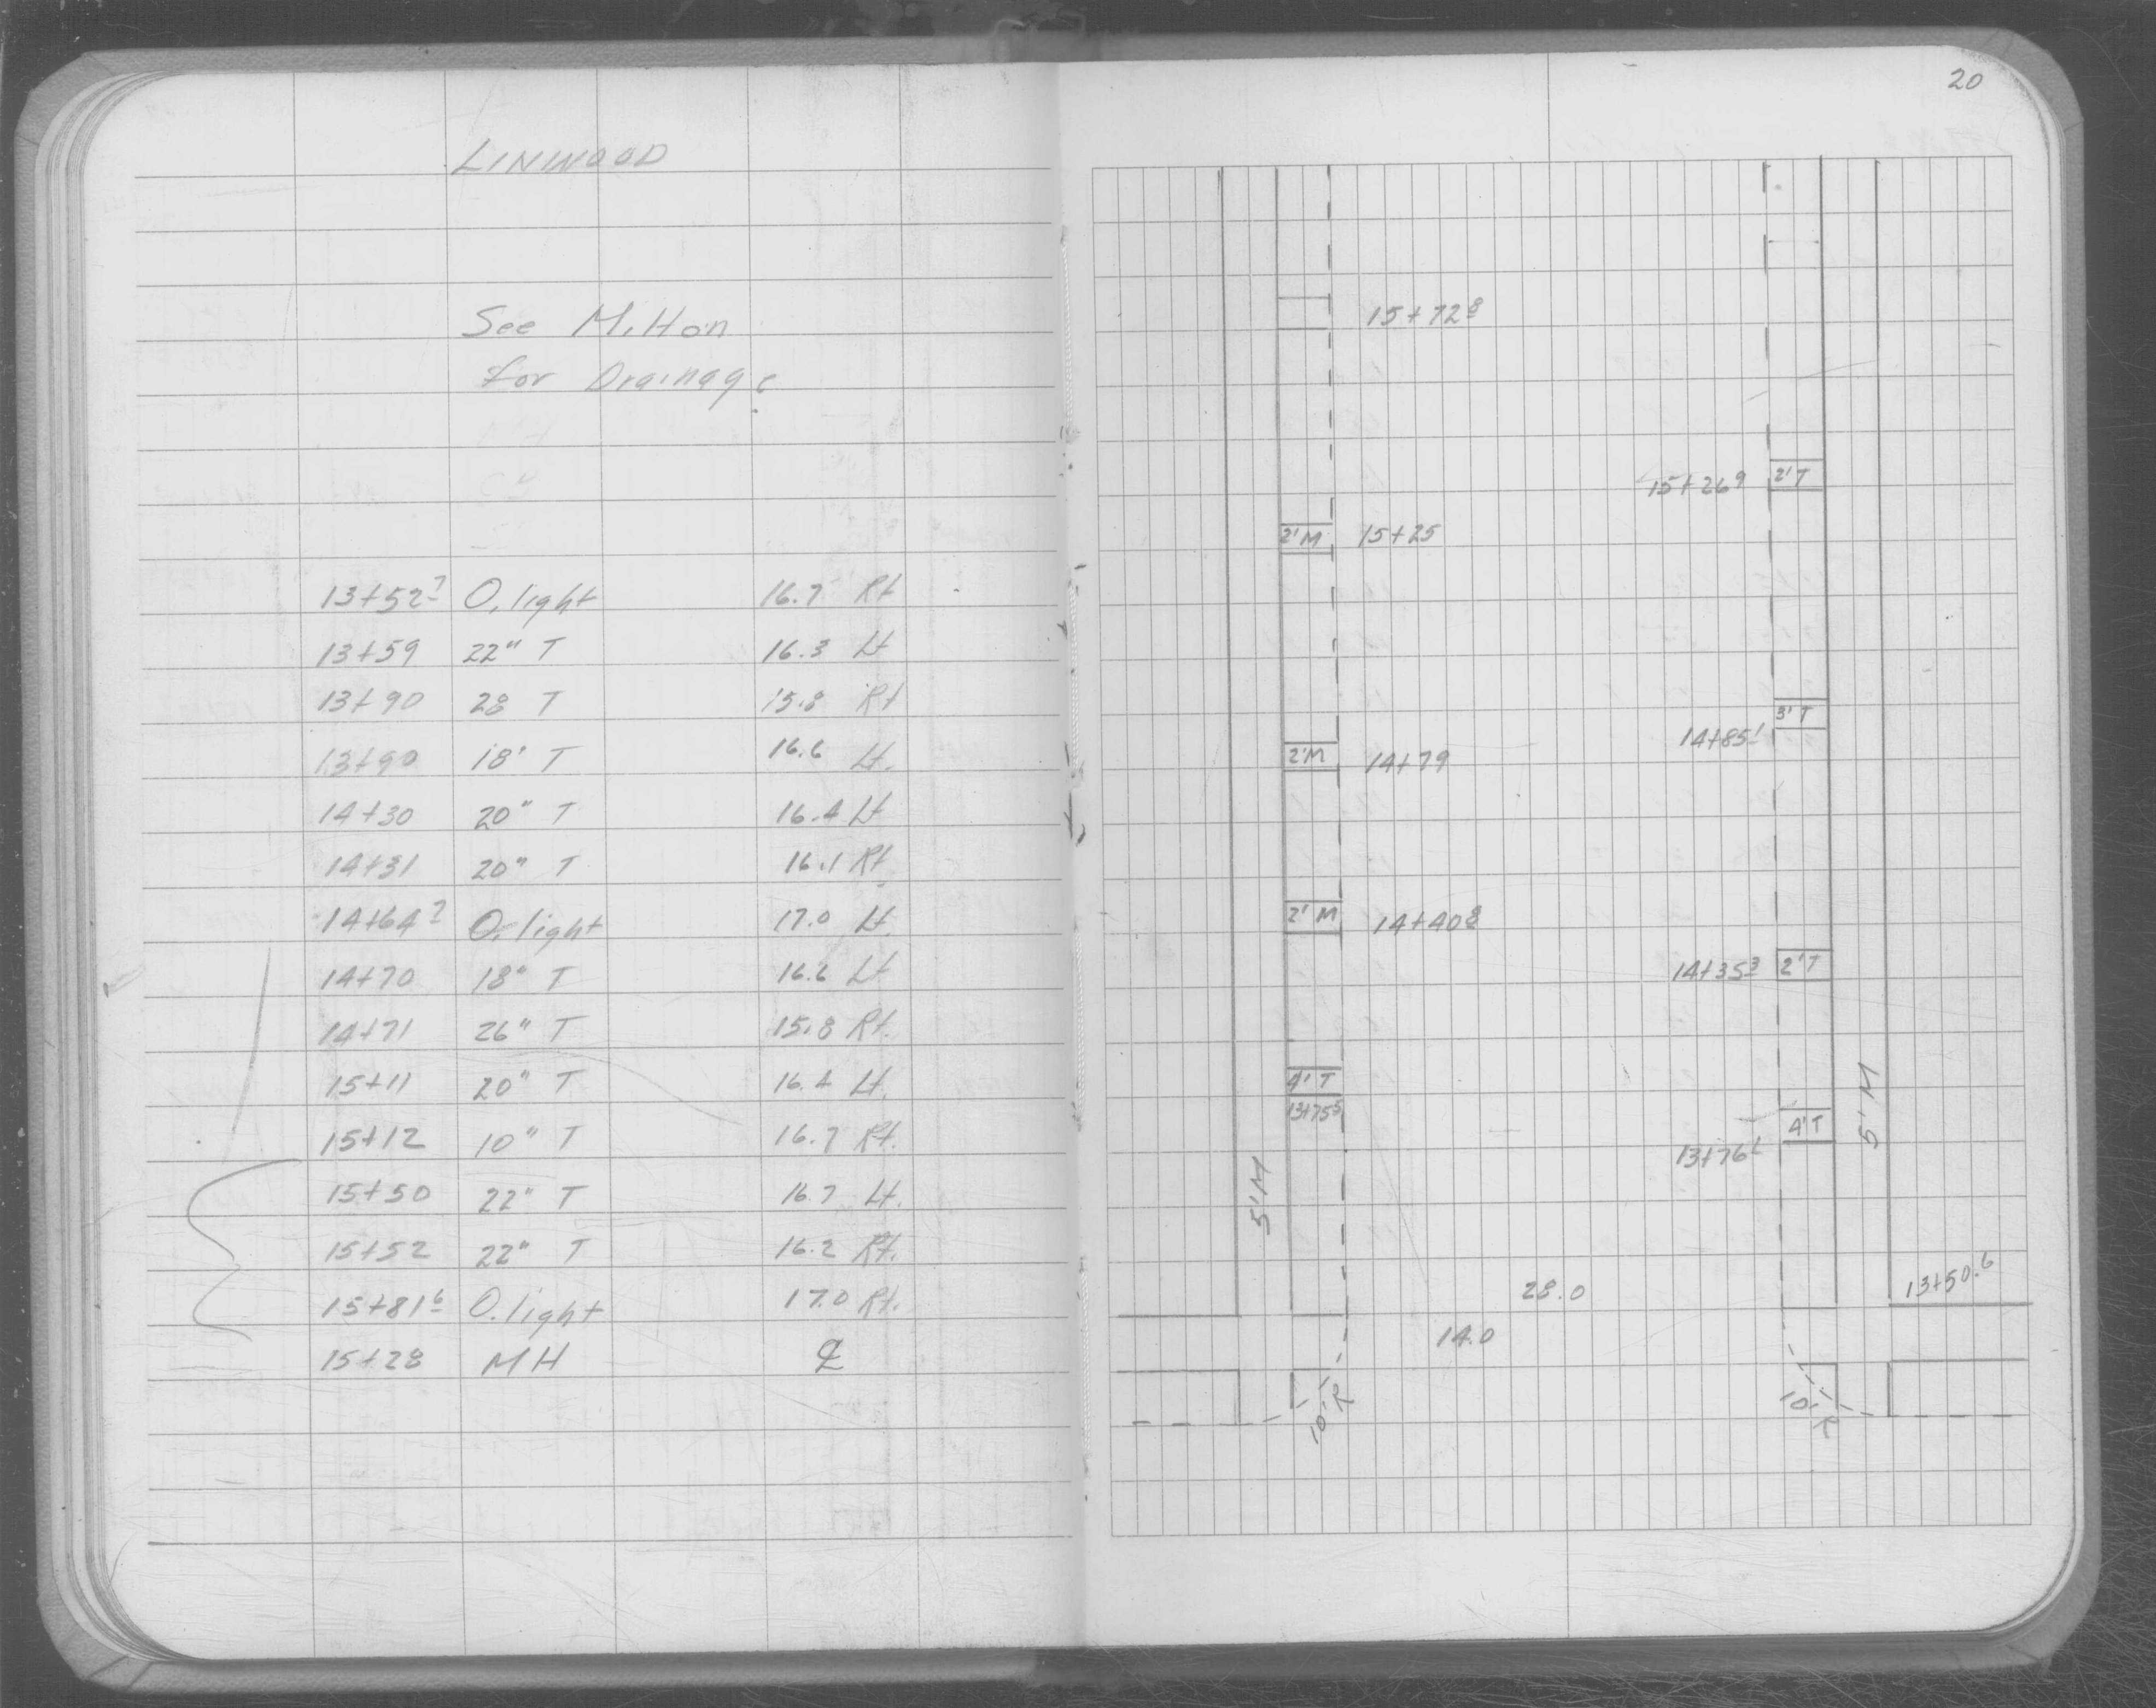 LINWOOD
See Milton
for Drainage
13+52⁷ O. light 16.7 Rt
13+59 22" T 16.3 Lt
13+90 28 T 15.8 Rt
13+90 18' T 16.6 Lt.
14+30 20" T 16.4 Lt
14+31 20" T 16.1 Rt
14+64⁷ O. light 17.0 Lt
14+70 18" T 16.6 Lt
14+71 26" T 15.8 Rt.
15+11 20" T 16.4 Lt.
15+12 10" T 16.7 Rt.
15+50 22" T 16.7 Lt.
15+52 22" T 16.2 Rt.
15+81⁶ O. light 17.0 Rt.
15+28 MH ℄
20
15+72⁸
15+26⁹ 2' T
2' M 15+25
3' T
14+85¹
2' M 14+79
2' M 14+40⁸
14+35³ 2' T
4' T
13+75⁵
4' T
13+76¹
5' M
5' M
28.0
13+50.6
14.0
10' R
10' R